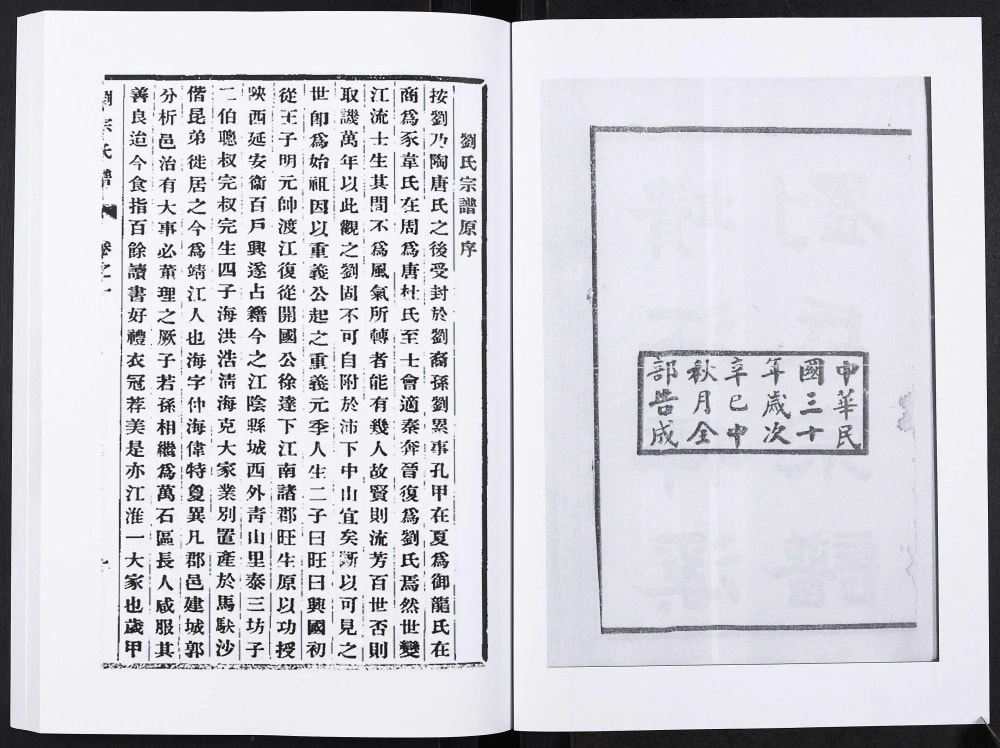 中華民
國三十
年歲次
辛巳中
秋月仝
部告成
劉氏宗譜原序
按劉乃陶唐氏之後受封於劉裔孫劉累事孔甲在夏爲御龍氏在
商爲豕韋氏在周爲唐杜氏至士會適秦奔晉復爲劉氏焉然世變
江流士生其間不爲風氣所轉者能有幾人故賢則流芳百世否則
取譏萬年以此觀之劉固不可自附於沛下中山宜矣斷以可見之
世卽爲始祖因以重義公起之重義元季人生二子曰旺曰興國初
從王子明元帥渡江復從開國公徐達下江南諸郡旺生原以功授
陝西延安衞百戶興遂占籍今之江陰縣城西外靑山里泰三坊子
二伯聰叔完叔完生四子海洪浩淸海克大家業別置產於馬馱沙
偕昆弟徙居之今爲靖江人也海字仲海偉特敻異凡郡邑建城郭
分析邑治有大事必董理之厥子若孫相繼爲萬石區長人咸服其
善良迨今食指百餘讀書好禮衣冠荐美是亦江淮一大家也歲甲
劉宗氏譜 卷之一